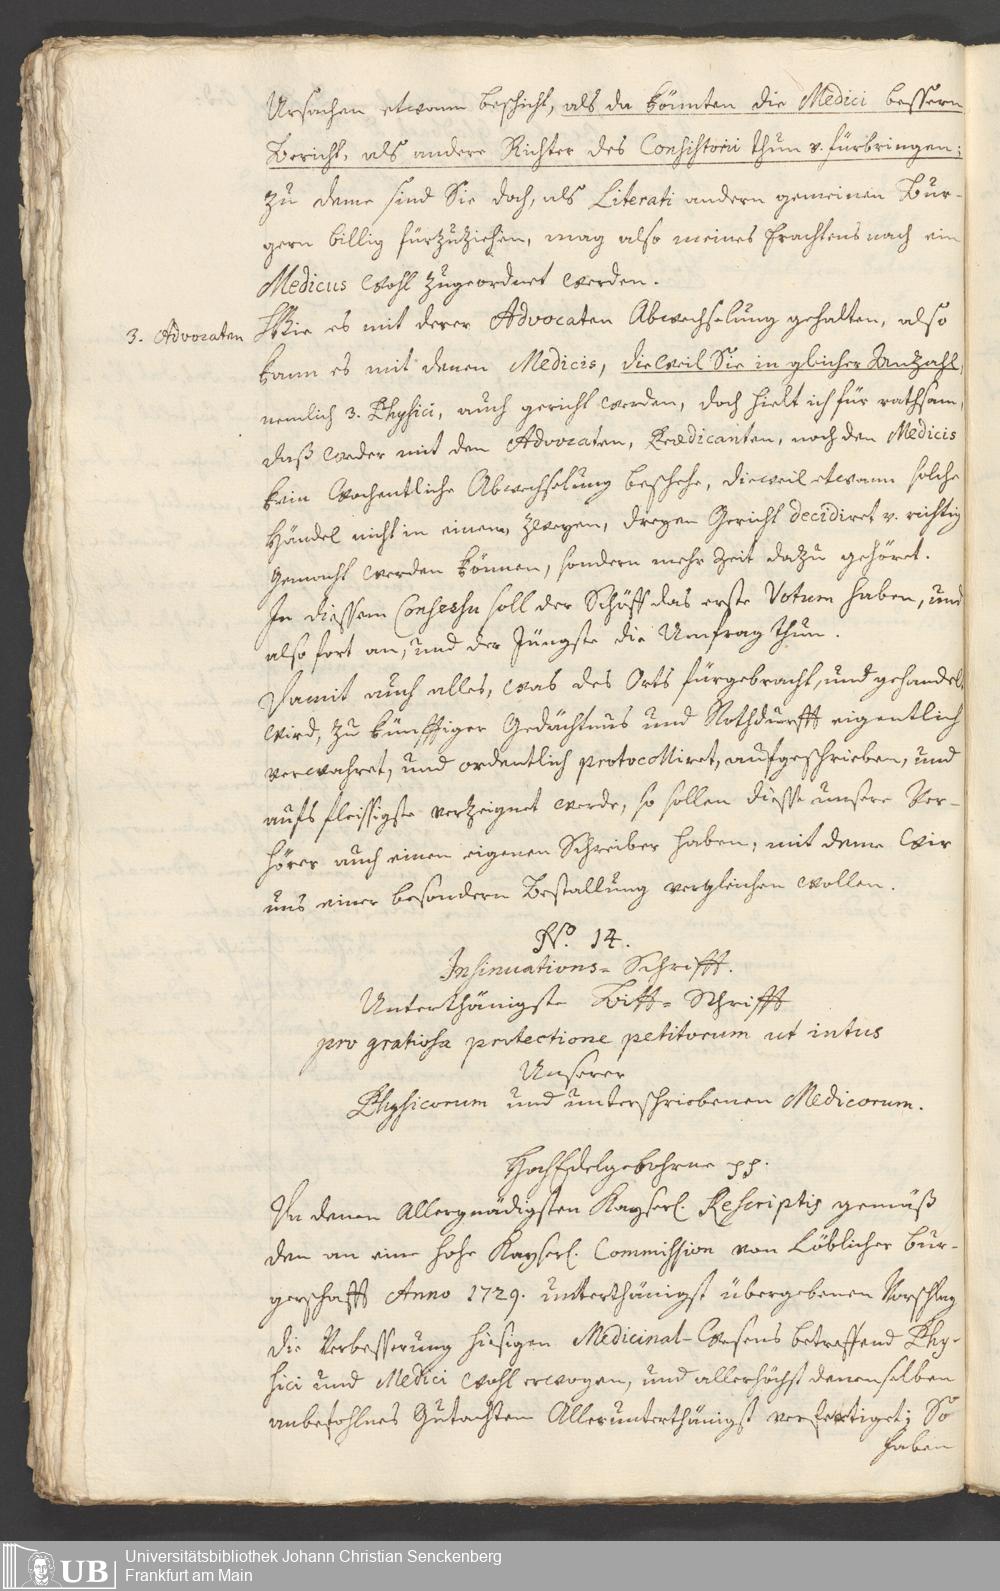 Ursachen etwann beschicht, als da könnten die Medici bessern
Bericht, als andere Richter des Consistorii thun v. fürbringen;
zu deme sind Sie doch, als Literati andern gemeinen Bur-
gern billig fürzuziehen, mag also meines Erachtens nach ein
Medicus wohl zugeordnet werden.
3. Advocaten
Wie es mit derer Advocaten Abwechselung gehalten, also
kann es mit denen Medicis, dieweil Sie in gleicher Anzahl,
nemlich 3. Physici, auch gericht werden, doch hielt ich für rathsam,
daß weder mit den Advocaten, Prædicanten, noch den Medicis
kein wochentliche Abwechselung beschehe, dieweil etwann solche
Händel nicht in einem, zweyen, dreyen Gericht decidiret v. richtig
gemacht werden können, sondern mehr Zeit dazu gehöret.
In diessem Consessu soll der Schöff das erste Votum haben, und
also fort an, und der Jüngste die Umfrag thun.
Damit auch alles, was des Orts fürgebracht, und gehandelt
wird, zu künfftiger Gedächtnus und Nothdurfft eigentlich
verwahret, und ordentlich protocolliret, aufgeschrieben, und
aufs fleissigste verzeignet werde, so sollen diesse unsere Ver-
hörer auch einen eigenen Schreiber haben, mit deme wir
uns einer besondern Bestallung vergleichen wollen.
No. 14.
Insinuations-Schrifft.
Unterthänigste Bitt-Schrifft
pro gratiosa protectione petitorum ut intus
Unserer
Physicorum und unterschriebenen Medicorum.
HochEdelgebohrne pp.
Da denen Allergnädigsten Kayserl. Rescriptis gemäß
den an eine hohe Kayserl. Commission von Löblicher Bur-
gerschafft Anno 1729. unterthänigst übergebenen Vorschlag
die Verbesserung hiesigen Medicinal-Wesens betreffend Phy-
sici und Medici wohl erwogen, und allerhöchst denenselben
anbefohlnes Gutachten Allerunterthänigst verfertiget; So
haben
UB
Universitätsbibliothek Johann Christian Senckenberg
Frankfurt am Main